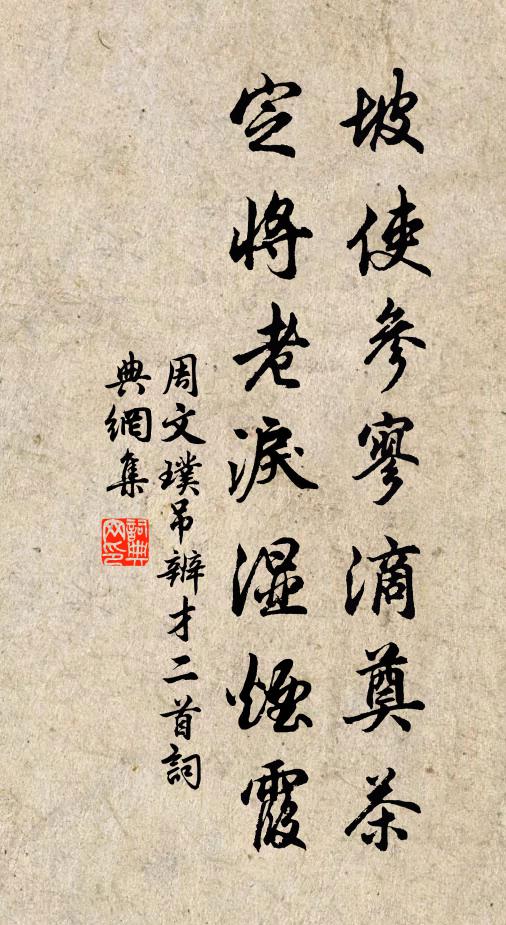 坡使參寥滴奠茶
定將老淚濕煙霞
周文璞吊辨才二首詞
典網集
詞典網印